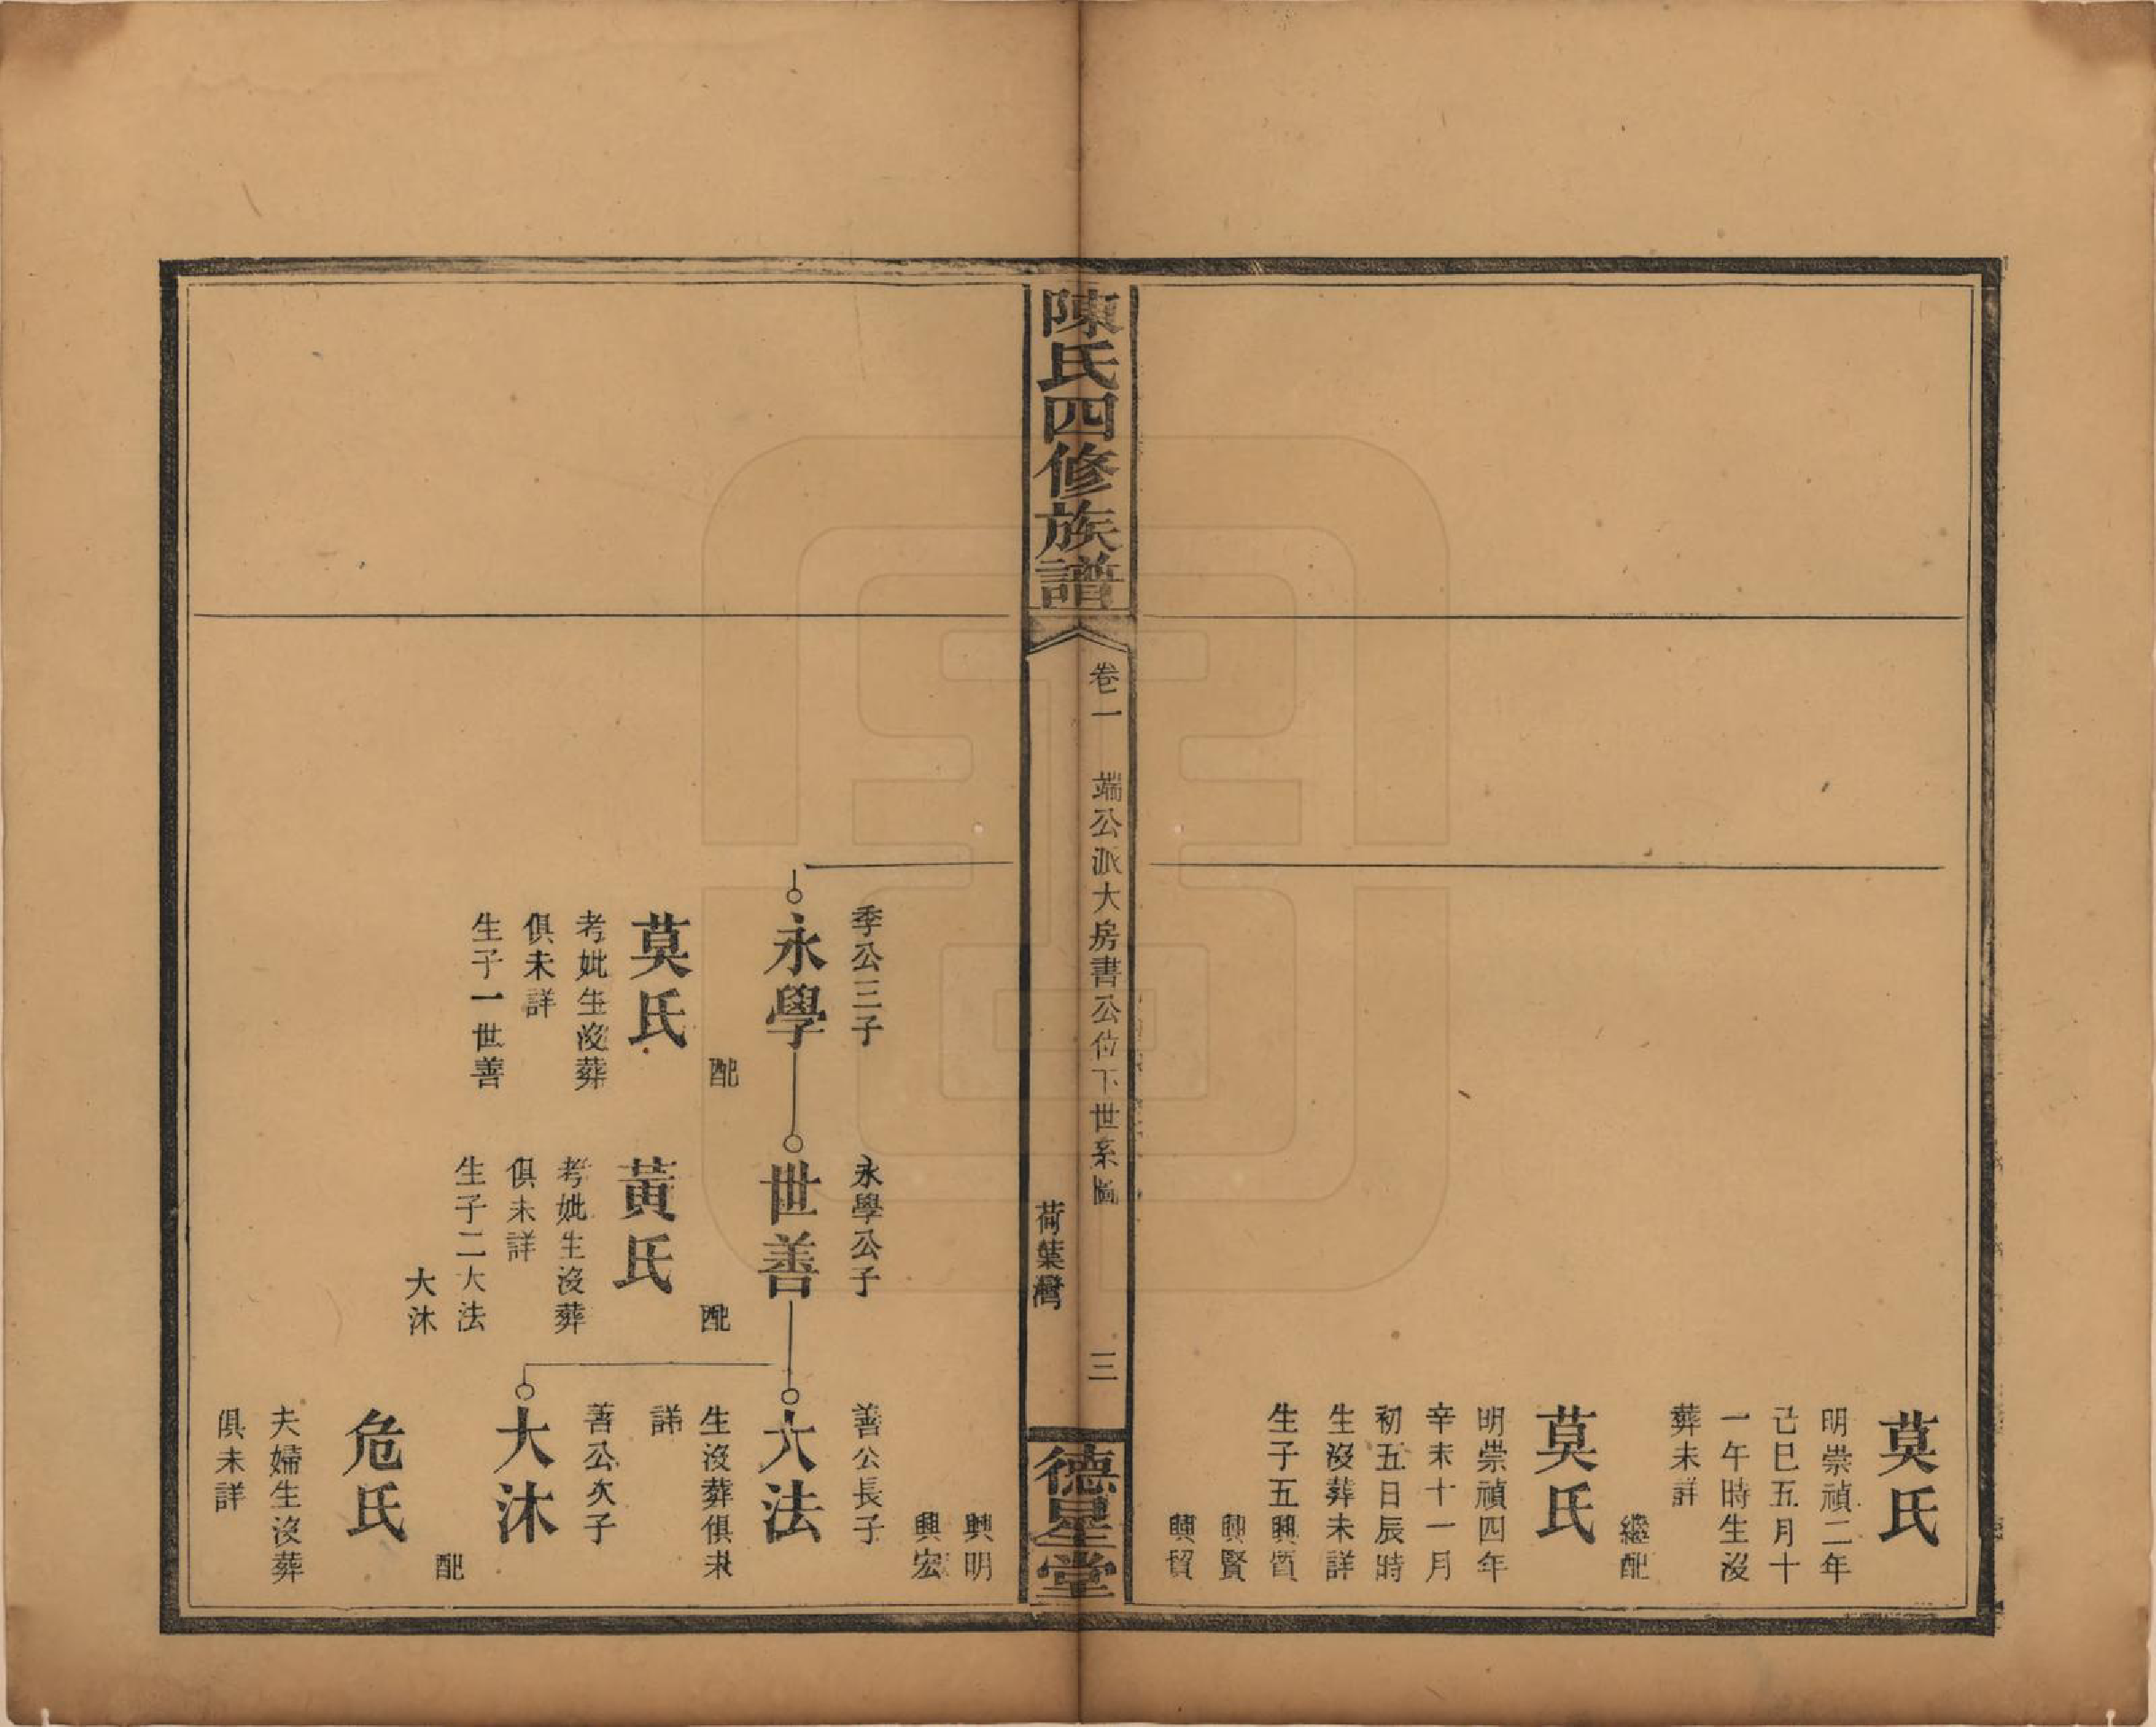 莫氏
明崇禎二年
己巳五月十
一午時生沒
葬未詳
繼配
莫氏
明崇禎四年
辛未十一月
初五日辰時
生沒葬未詳
生子五興質
興賢
興貿
陳氏四修族譜
卷一 端公派大房書公位下世系圖 三
荷葉灣
德星堂
興明
興宏
季公三子
永學
配
莫氏
考妣生沒葬
俱未詳
生子一世善
永學公子
世善
配
黃氏
考妣生沒葬
俱未詳
生子二大法
大沐
善公長子
大法
生沒葬俱未
詳
善公次子
大沐
配
危氏
夫婦生沒葬
俱未詳